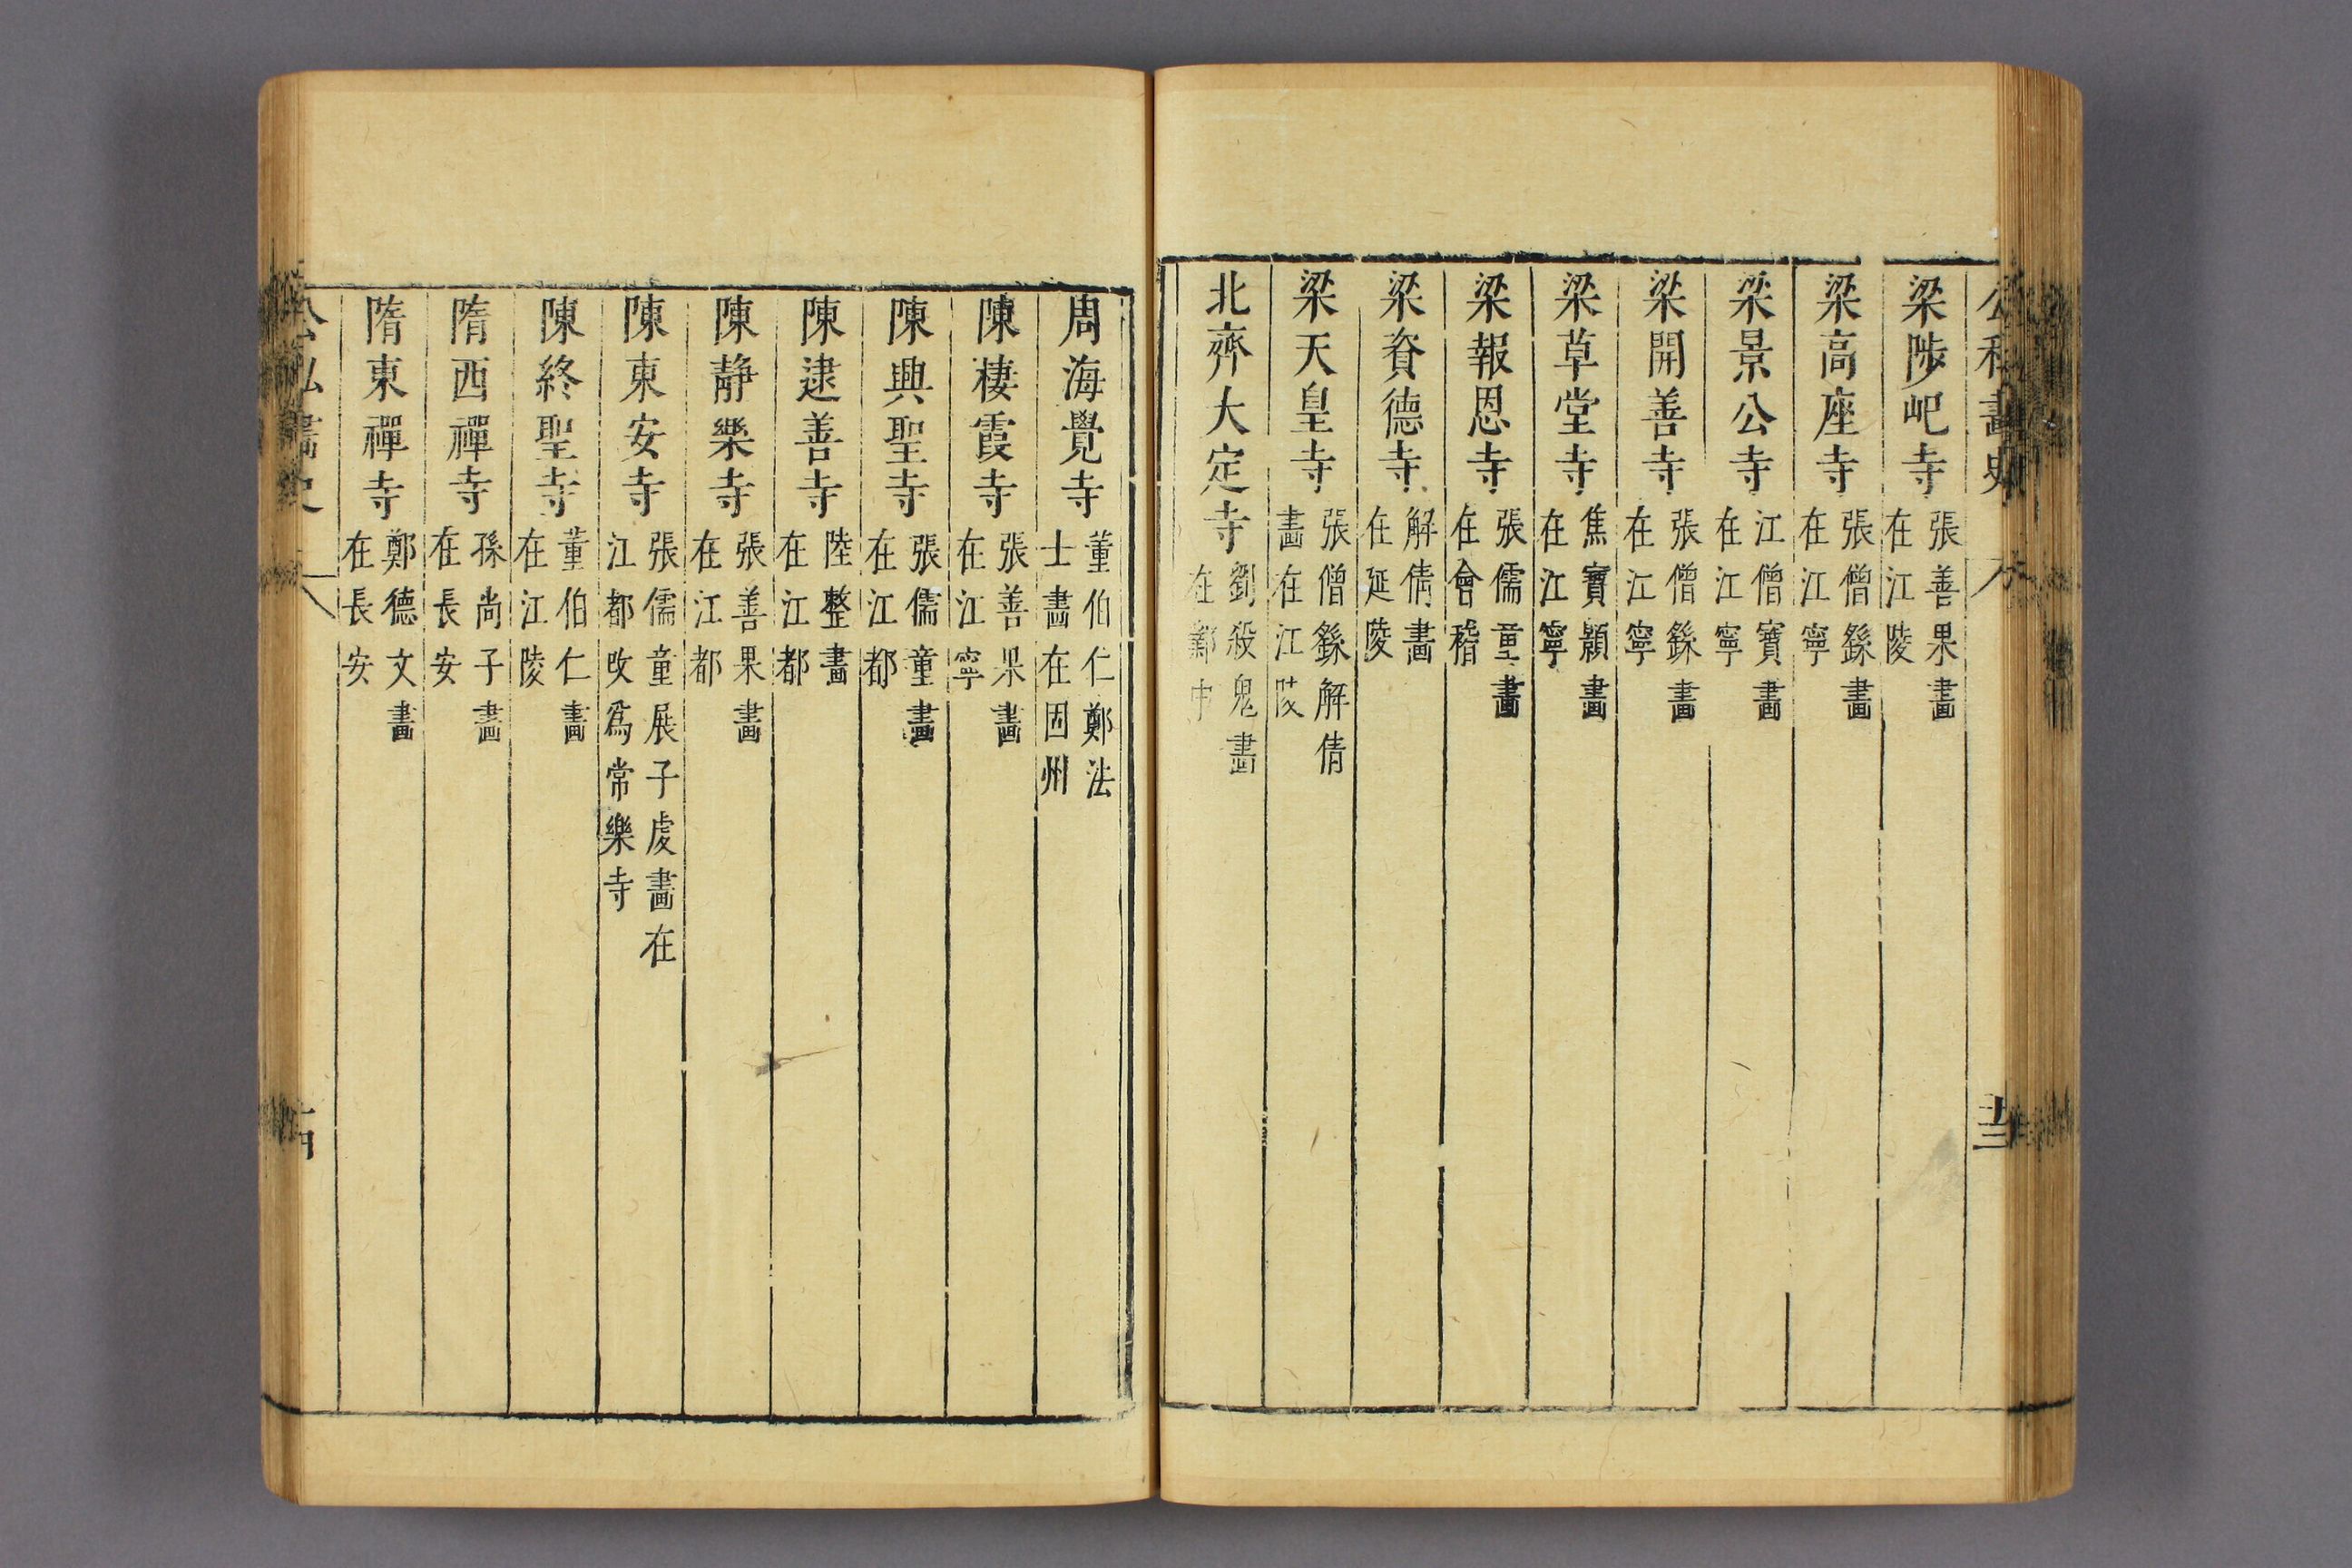 公私畫史
梁陟屺寺 張善果畫 在江陵
梁高座寺 張僧繇畫 在江寧
梁景公寺 江僧寶畫 在江寧
梁開善寺 張僧繇畫 在江寧
梁草堂寺 焦寶願畫 在江寧
梁報恩寺 張儒童畫 在會稽
梁資德寺 解倩畫 在延陵
梁天皇寺 張僧繇解倩 畫在江陵
北齊大定寺 劉殺鬼畫 在鄴中
周海覺寺 董伯仁鄭法 士畫在固州
陳棲霞寺 張善果畫 在江寧
陳興聖寺 張儒童畫 在江都
陳逮善寺 陸整畫 在江都
陳靜樂寺 張善果畫 在江都
陳東安寺 張儒童展子虔畫在 江都改爲常樂寺
陳終聖寺 董伯仁畫 在江陵
隋西禪寺 孫尚子畫 在長安
隋東禪寺 鄭德文畫 在長安
公私畫史